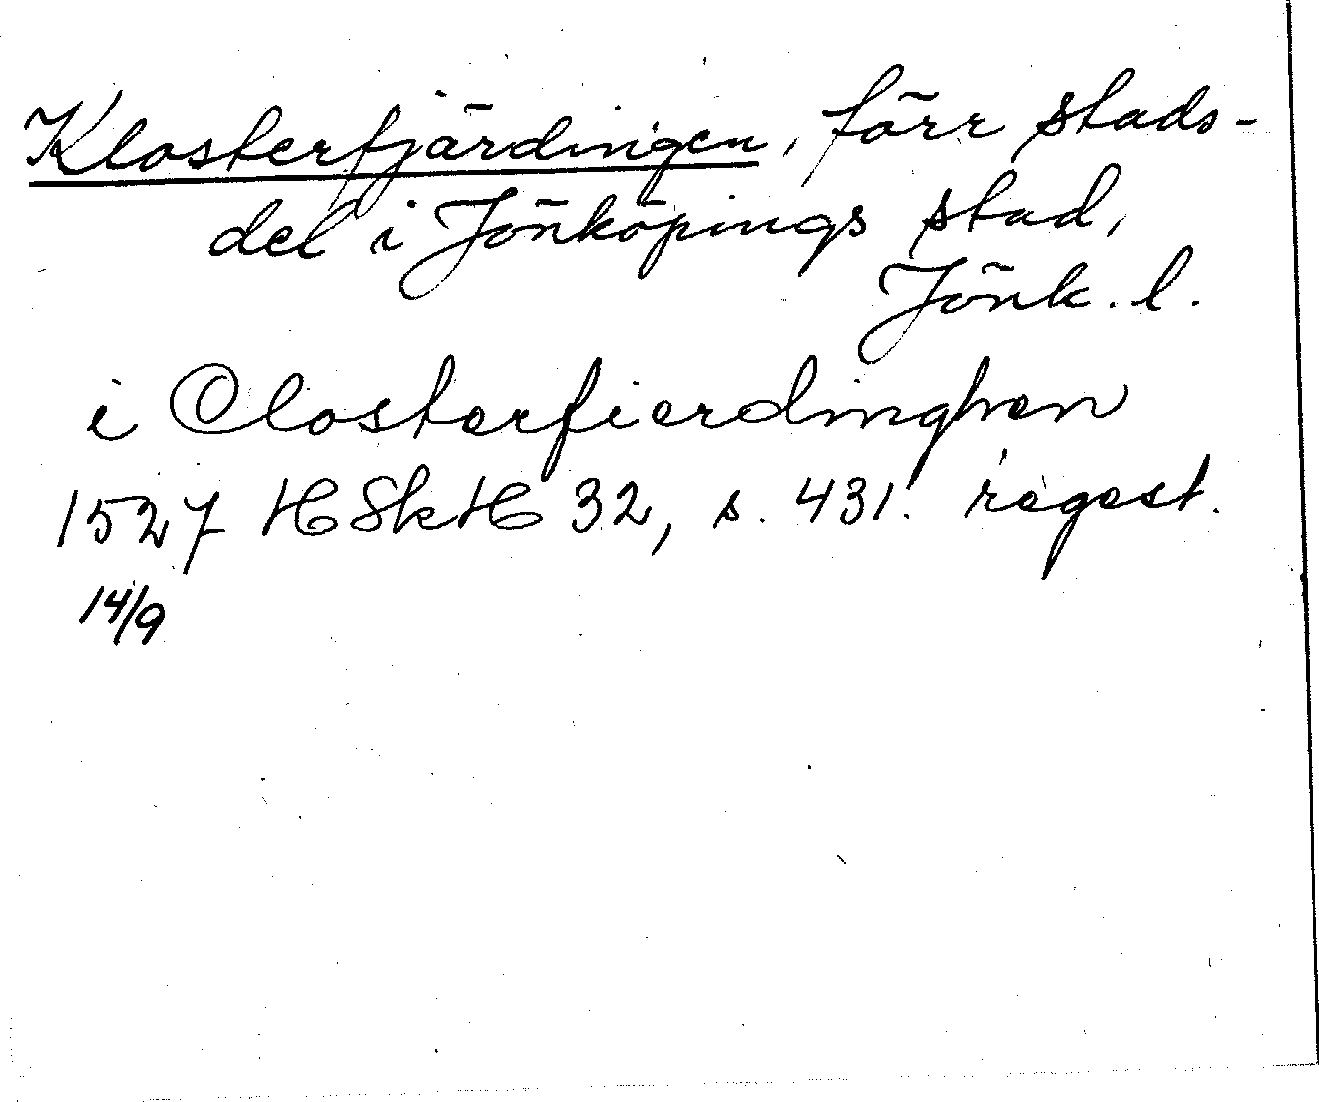 Klosterfjärdingen, förr stads-
del i Jönköpings stad,
Jönk. l.
i Closterfierdinghen
1527 HSkH 32, s. 431. regest.
14/9